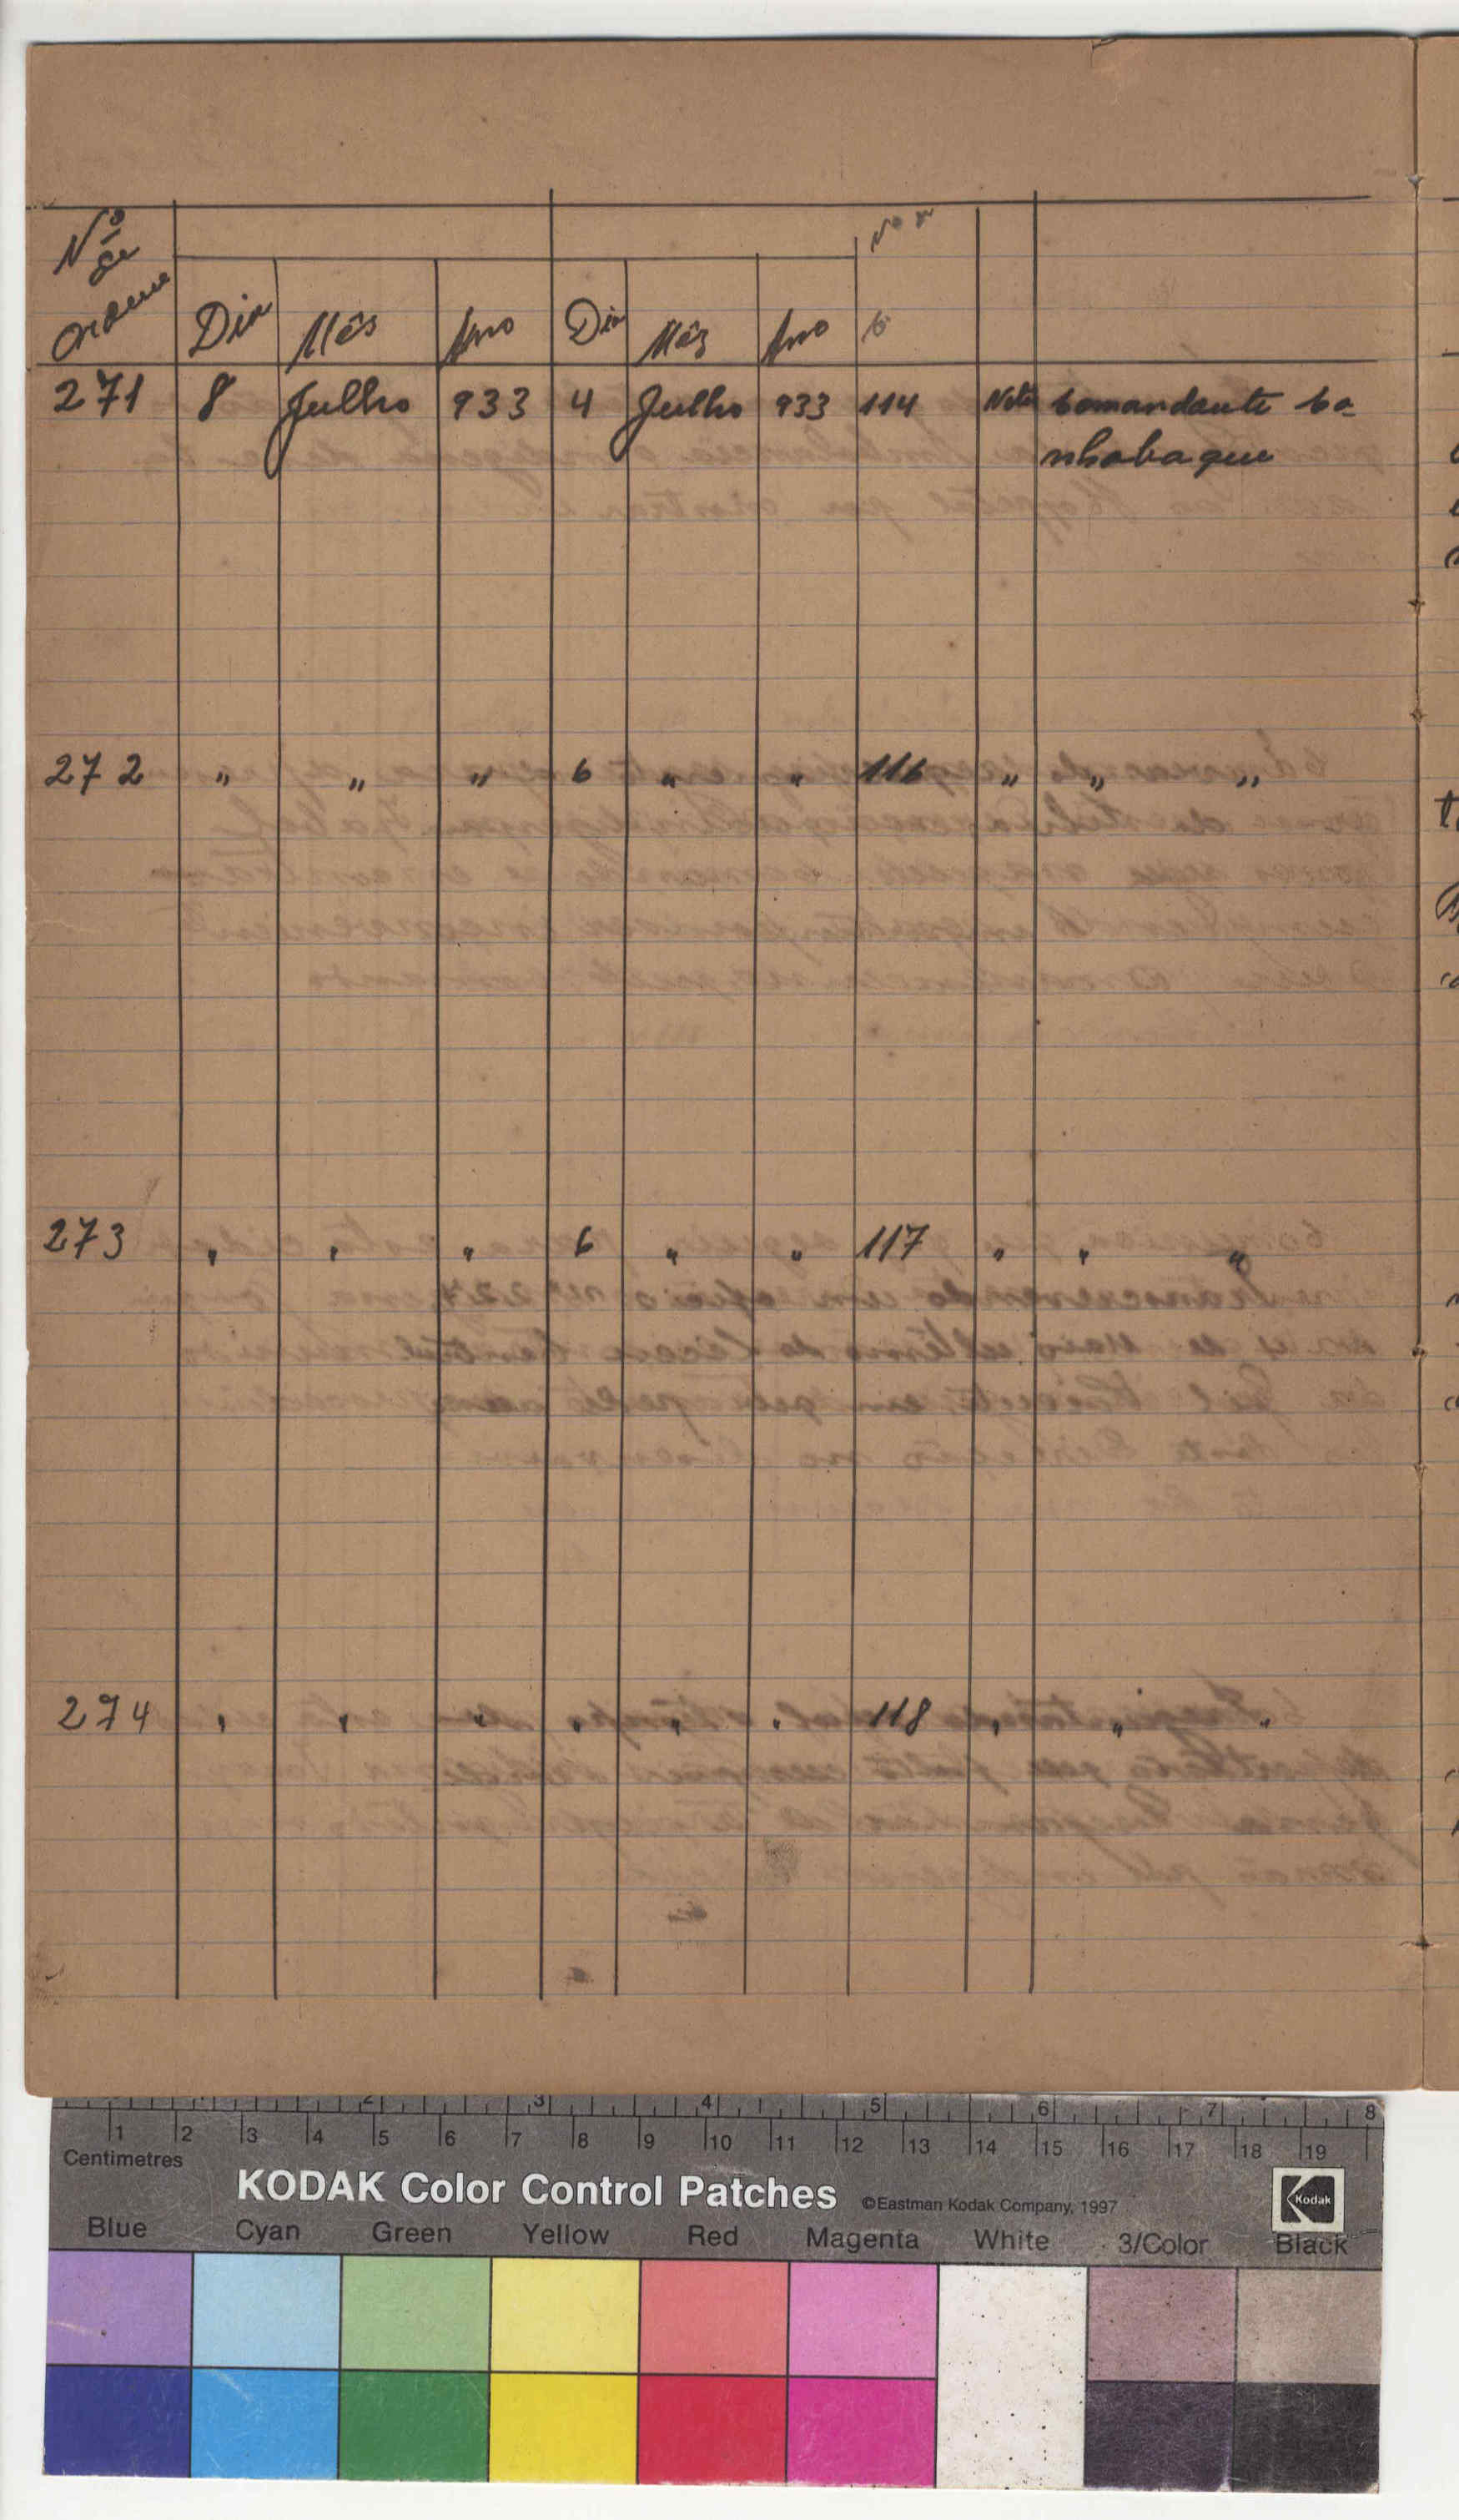 Nº de ordem
Dia Mês Ano Dia Mês Ano
271 8 Julho 933 4 Julho 933 114 Nota Comandante Ca-
nhabaque
272 " " " 6 " " 116 " " "
273 " " " 6 " " 117 " " "
274 " " " " " " 118 " " "
1 2 3 4 5 6 7 8
1 2 3 4 5 6 7 8 9 10 11 12 13 14 15 16 17 18 19
Centimetres
KODAK Color Control Patches ©Eastman Kodak Company, 1997 Kodak
Blue Cyan Green Yellow Red Magenta White 3/Color Black